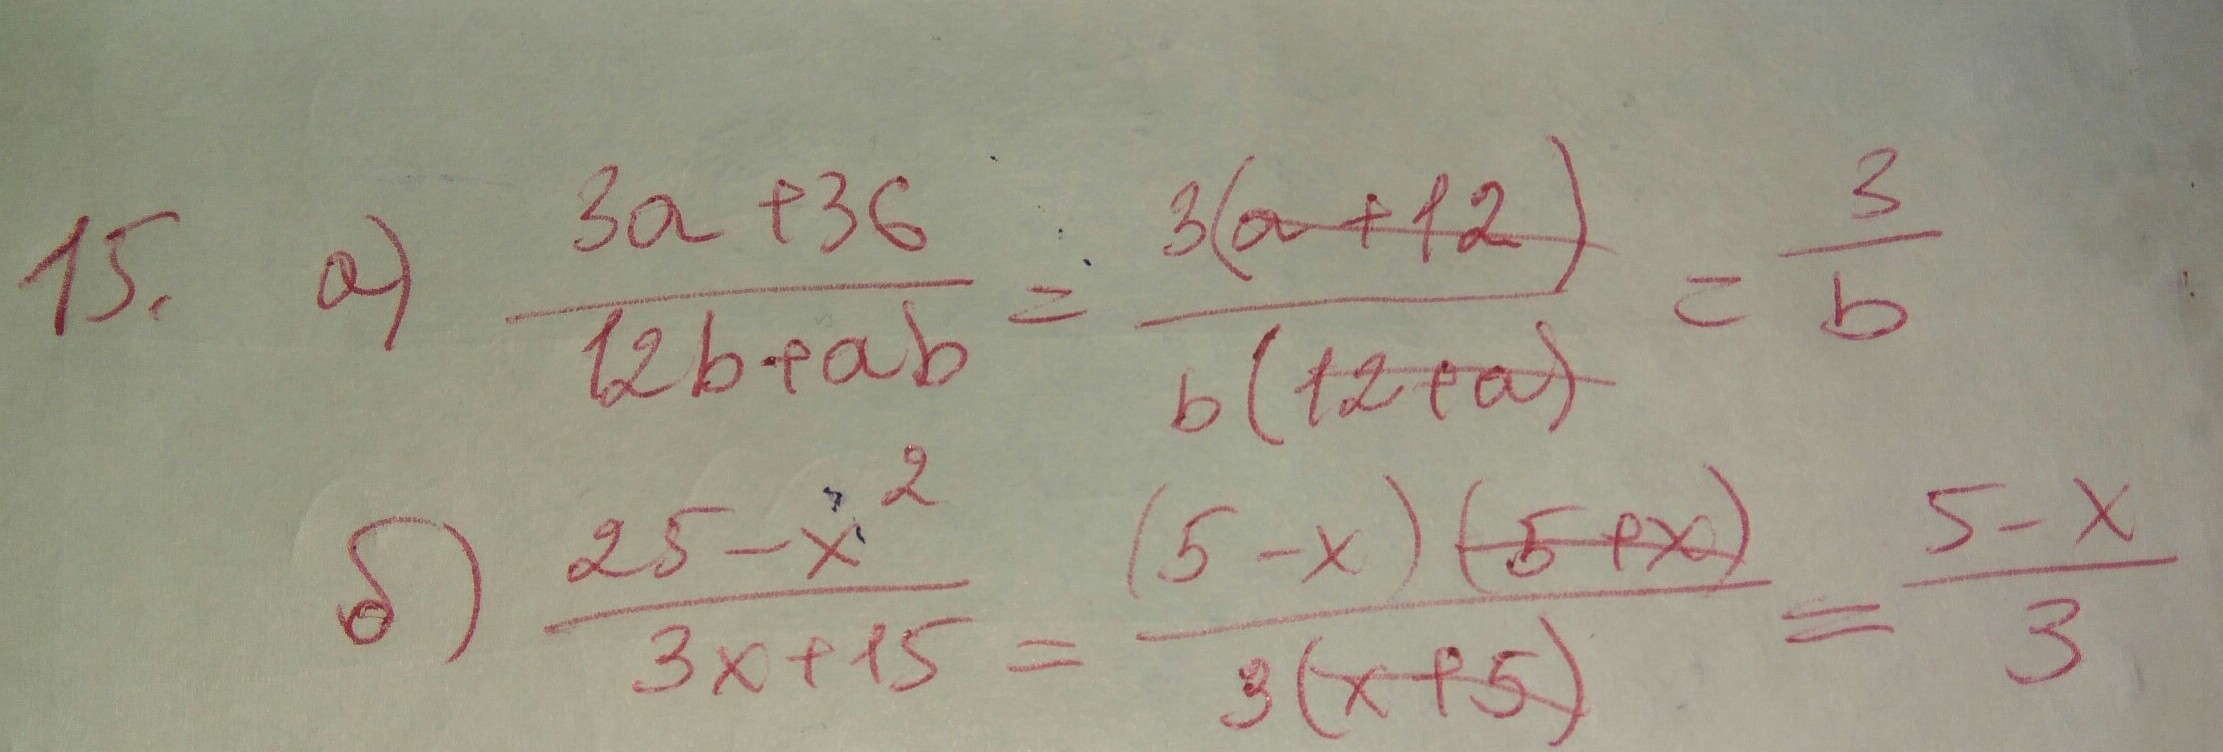 15. а) \frac{3a+36}{12b+ab} = \frac{3(a+12)}{b(12+a)} = \frac{3}{b}
б) \frac{25-x^2}{3x+15} = \frac{(5-x)(5+x)}{3(x+5)} = \frac{5-x}{3}